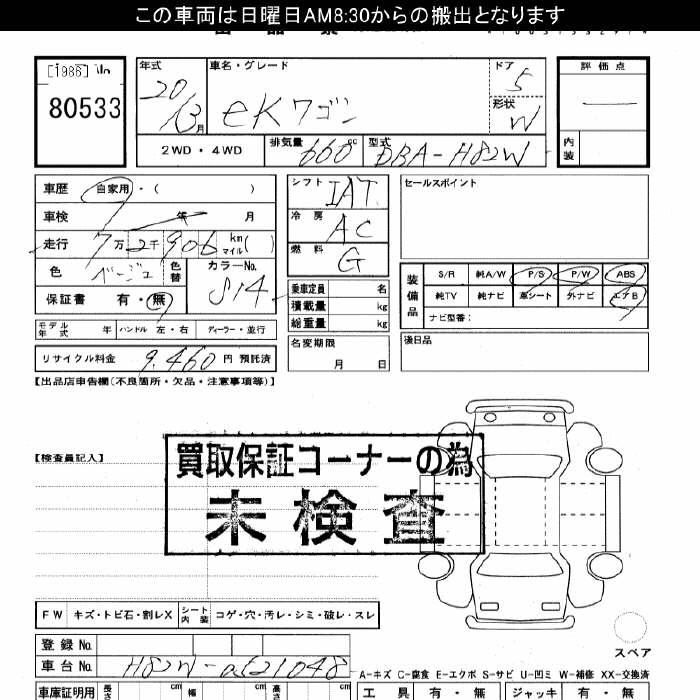 この車両は日曜日AM8:30からの搬出となります
[1986] No
80533
年式 車名・グレード ドア 評価点
20/3月 eKワゴン 5
形状 W
2WD・4WD 排気量 660cc 型式 DBA-H82W 内装
車歴 自家用・( )
車検 年 月
走行 7万2千906km マイル( )
色 ベージュ 色替 カラーNo. S14
保証書 有・無
シフト IAT
冷房 AC
燃料 G
乗車定員 名
積載量 kg
総重量 kg
セールスポイント
装備品 S/R 純A/W P/S P/W ABS
純TV 純ナビ 革シート 外ナビ エアB
ナビ型番:
モデル年式 年 ハンドル 左・右 ディーラー・並行
リサイクル料金 9,460円 預託済
名変期限 月 日
後日品
【出品店申告欄(不良箇所・欠品・注意事項等)】
【検査員記入】
買取保証コーナーの為
未検査
FW キズ・トビ石・割レX シート内装 コゲ・穴・汚レ・シミ・破レ・スレ
スペア
登録No.
車台No. H82W-
A-キズ C-腐食 E-エクボ S-サビ U-凹ミ W-補修 XX-交換済
車庫証明用 長さ cm 幅 cm 高さ cm
工具 有・無 ジャッキ 有・無